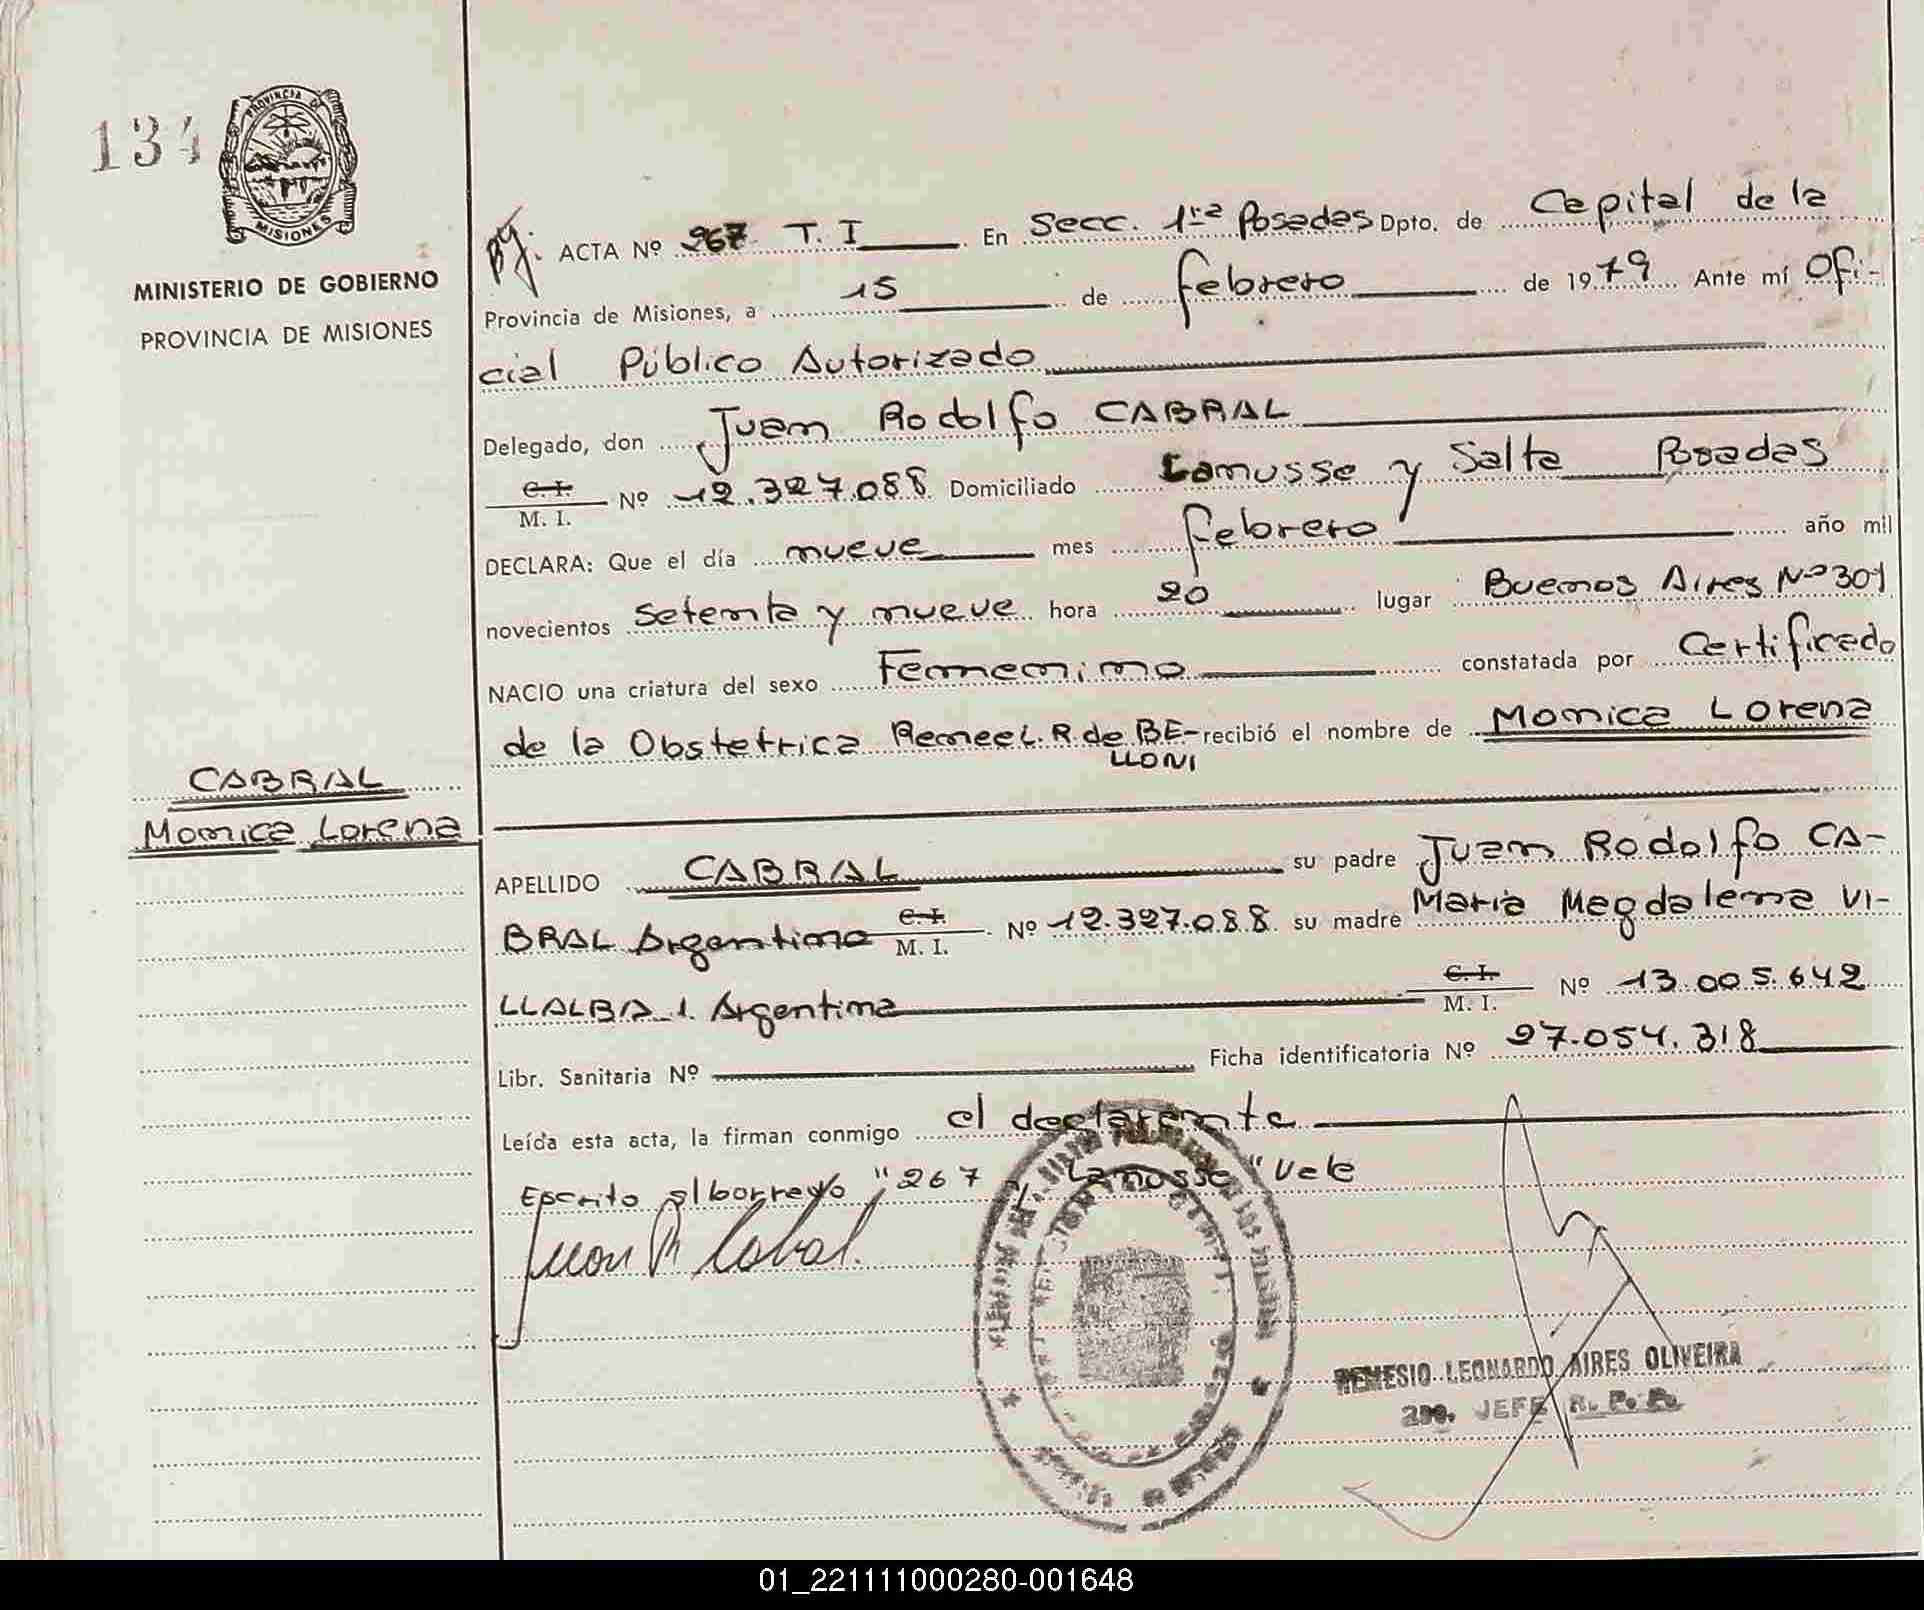 134
PROVINCIA DE
MISIONES
MINISTERIO DE GOBIERNO
PROVINCIA DE MISIONES
ACTA Nº 267 T. I En Secc. 1ra Posadas Dpto. de Capital de la
Provincia de Misiones, a 15 de febrero de 1979 Ante mí Ofi-
cial Público Autorizado
Delegado, don Juan Rodolfo CABRAL
C. I. / M. I. Nº 12.327.088 Domiciliado Lanusse y Salta Posadas
DECLARA: Que el día nueve mes febrero año mil
novecientos setenta y nueve hora 20 lugar Buenos Aires Nº 301
NACIO una criatura del sexo Femenino constatada por Certificado
de la Obstetrica Renee L. R. de BE- recibió el nombre de Monica Lorena
LLONI
CABRAL
Monica Lorena
APELLIDO CABRAL su padre Juan Rodolfo CA-
BRAL Argentino C. I. / M. I. Nº 12.327.088 su madre Maria Magdalena VI-
LLALBA Argentina C. I. / M. I. Nº 13.005.642
Libr. Sanitaria Nº Ficha identificatoria Nº 27.054.318
Leída esta acta, la firman conmigo el declarante
Escrito s/borrado "267 y Lanusse" Vale
Juan R Cabral.
REMESIO LEONARDO AIRES OLIVEIRA
2do. JEFE R. P. P.
01_221111000280-001648